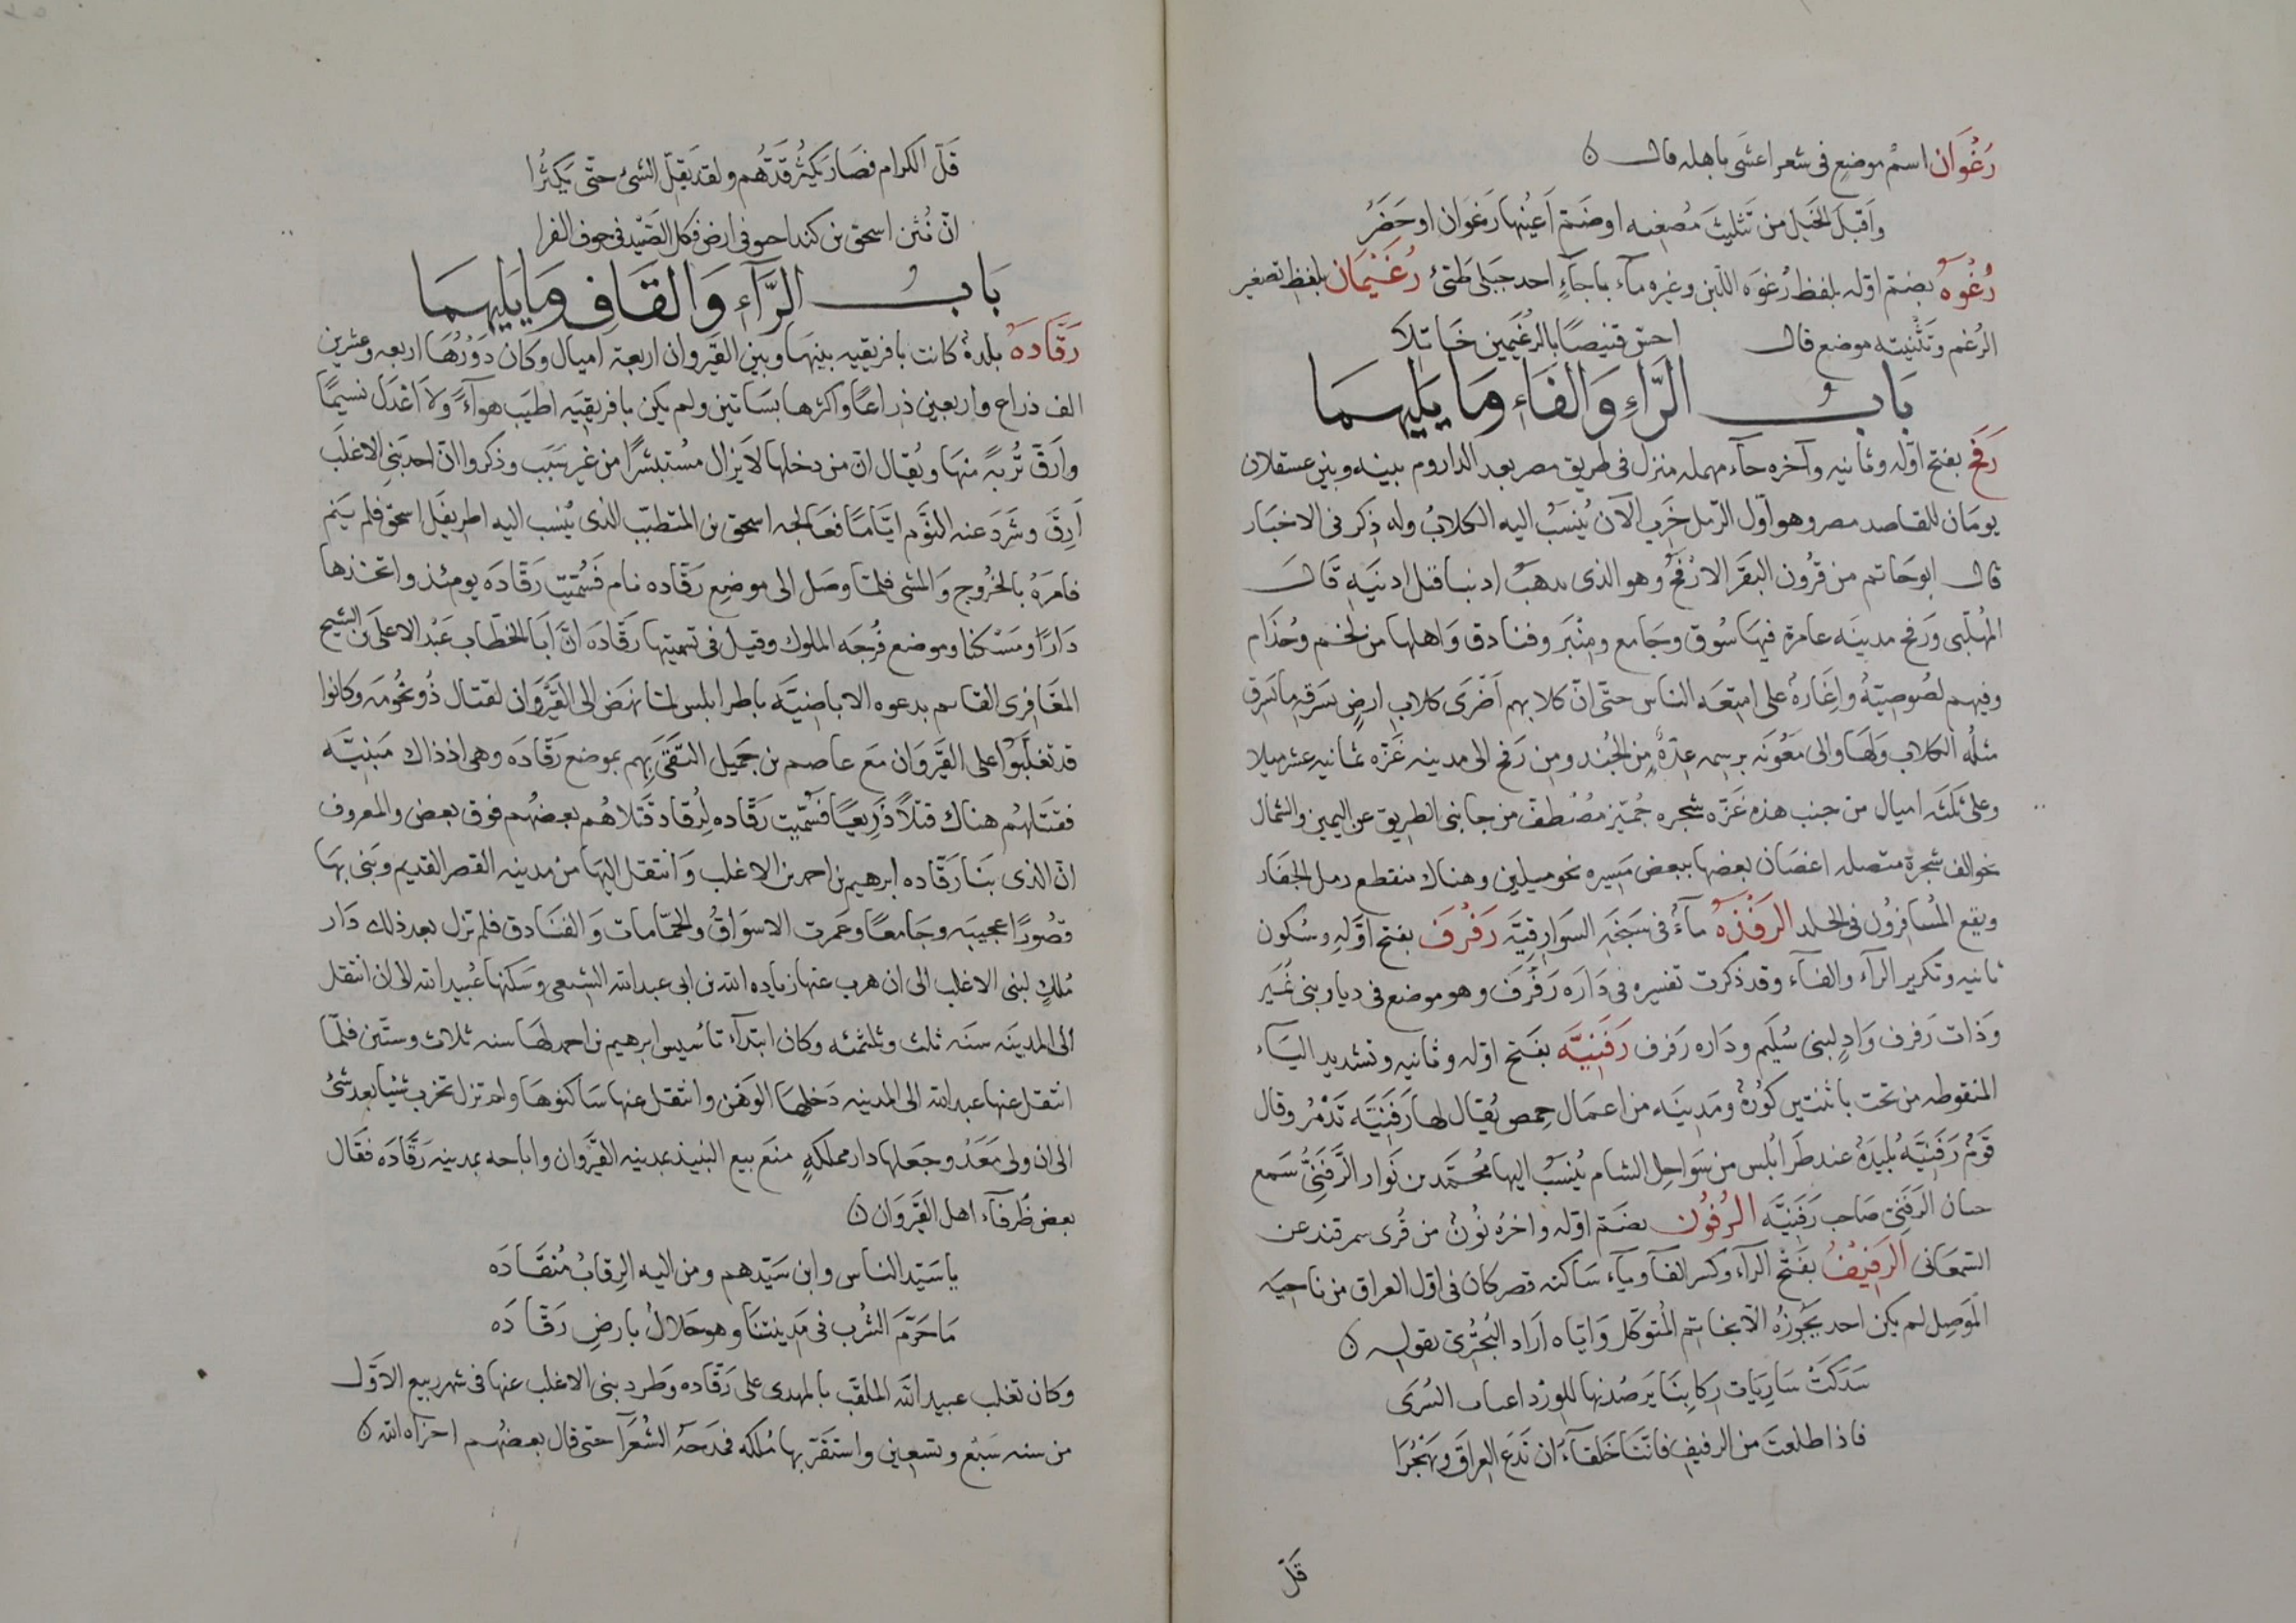 رَغْوَان اسمُ موضعٍ فى شعر اعشى باهله قال
وَاَقبَلَ الخَيل من تَثليثَ مُصغيه او ضَمّ اَعيُنها رَغوَان او حَضَرُ
رُغْوَهُ بضمّ اوّله بلفظ رُغوَه اللّبن وغيره مآء باجآءٍ احد جَبلى طَىّئ رُغَيْمَان بلفظ تصغير
الرُغم وَتَثْنيته موضع قال احتى قنيصًا بالرُغَيمين خَاتِلا
بَابُ الرَّاءِ وَالفَاءِ وَمَا يَليهِمَا
رَفَحُ بفتح اوّله وثانيه وآخره حآء مهمله منزل فى طريق مصر بعد الداروم بينه وبين عسقلان
يومَان للقاصد مصر وهو اوّل الرّمل خَرِب الآن يُنسَبُ اليه الكلابُ وله ذِكر فى الاخبَار
قال ابو حَاتم من قرُون البقَر الارْفَحُ وهو الذى يذهبُ اذنيا قبل اذنَيه قَالَ
المُهلّبى وَرَفح مدينَه عامرة فيهَا سُوق وجَامع ومِنْبَر وفنادق وَاهلها من لخم وجُذَام
وفيهم لصُوصِيّةُ واِغَارةُ على امتِعَه الناس حتّى انّ كلابهم اَضْرَى كلابِ ارضٍ بسَرقهِ ما يَسرِق
مثلُه الكلاب وَلهَا والى مَعُونَه برسمه عِدّةُ مِن الجُند ومن رَفح الى مدينه غَزّه ثمانيه عشر ميلا
وعلى ثلثه اميال من جنب هذه غَزّه شجره جُمّيز مصْطفّ من جانبى الطريق عن اليمين والشمال
نحو الف شجرة متصله اغصَان بعضها ببعض مَسيره نحو ميلين وهناك منقطع رمل الجفَار
ويقع المُسَافرُون فى الجلد الرَفْدَهُ مآءُ فى سَبَخَه السَوَارقيَّه رَفْرَف بفتح اوّلهِ وسُكون
ثانيه وتكرير الرآء والفآء وقد ذكرت تفسيره فى دَارَه رَفْرَف وهو موضع فى ديار بنى نُمَير
وَذات رَفرف وَادٍ لبنى سُليَم ودَاره رَفرف رَفَنِيَّه بفَتح اوّله وثانيه وتشديد اليَآء
المنقوطه من تحت باثنتين كورُهُ ومَدينَه من اعمَال حِمص يُقال لها رَفَنِيَّه تَدْمُر وقال
قَومُ رَفَنِيَّهُ بُليدَهُ عند طَرابُلس من سَواحِل الشام يُنسَبُ اليها مُحمَّد بن نَوار الرَّفَنىّ سَمع
حسان الرفَنِىّ صَاحِب رَفَنِيَّه الرُفُون بضَمّ اوّله واخرُه نُونُ من قُرى سمرقند عن
السّمعَانى الرَفِيْفُ بفَتْح الرآء وكسر الفآ ويآء سَاكنه قصر كان فى اول العراق من ناحيَه
المَوصِل لم يكن احد يَجُوزهُ الّا بخاتم المُتوكّل وَايّاه اَرَاد البُحتُرىّ بقوله
سَدَكَتْ سَارِيَات رِكابنَا يَرصُدنها للورْد السُرَى
فاذا طلعتَ من الرفيفِ فاننَا خَلقآءُ ان نَدَع العِراقَ ونَهْجُرَا
قَلّ
قَلّ الكرام فصَار يَكثُر قَدّهُم ولقد يَقِلّ الشئ حتّى يَكثُرا
انّ نُثن اسحق بن كنداحو فى ارض فكل الصّيد فى جوف الفرا
بَابُ الرَّآءِ وَالقَافِ وَمَا يَليهمَا
رَقّادَهُ بلدهُ كانت بافريقيه بينهَا وبين القيروان اربعة اميال وكان دَوْرُهَا اربعه وعشرين
الف ذراع واربعين ذراعًا واكثرها بسَاتين ولم يكن بافريقيَه اطيَب هوآءً وَلا اَعْدَل نسيمًا
وارَقّ تُربهً منهَا ويُقال انّ من دخلها لا يزال مُستبشرًا من غير سَبَب وذكروا انّ احد بَنى الاغلَب
اَرِقَ وشَرَدَ عنه النوم ايّامًا فعَالجه اسحق بن المتطبّب الذى يُنسب اليه اطريفَل اسحق فلم يَنم
فامَرَهُ بالخرُوج وَالمشى فلمّا وصَل الى موضِع رَقّاده نام فَسُمّيت رَقّادَه يومئذ واتخذها
دَارًا ومَسْكنا وموضع فُرجَه الملوك وقيل فى تسميتها رَقّادَه انّ اَبا الخطّاب عَبْد الاعلى بن الشيح
المعَافِرى القاسم بدعوه الاباضيَّه باطرابلس لمّا نهَض الى القيرَوَان لقتال ذُو نخومَه وكانوا
قد تغلّبَوُا على القيرَوَان مَع عاصم بن جَميل التقىَ بِهم بموضع رَقّادَه وهى اذ ذاك مَبنيَّه
فقتَلهُم هناك قتْلاً ذَرِيعيًا فسُمّيت رَقّاده لِرُقاد قَتلاهُم بعضهُم فوق بعض والمعروف
انّ الذى بنَا رَقّاده ابرهيم بن احمد بن الاغلب وَانتقل اليهَا من مدينه القصر القديم وَبنى بهَا
قصُورًا عجيبَه وجَامعًا وعَمرت الاسوَاقُ والحمّامات وَالفنَادق فلم تزل بعد ذلك دَار
مُلكٍ لبنى الاغلب الى ان هرب عنها زياده الله بن ابى عبد الله الشيعى وسَكنها عُبيد الله الى ان انتقل
الى المدينَه سنَه ثلث وثلثمئه وكان ابتدآء تاسيس ابرهيم بن احمد لهَا سنه ثلاث وستّين فلمّا
انتقل عنها عبد الله الى المدينه دَخلهَا الوَهْن وانتقل عنها سَاكنوهَا ولم تزل تخرب شيئا بعد شئ
الى ان ولى مَعَدُ وجعَلها دار مملكهٍ منَع بيع النبيذ بمدينه القيرَوان واباحه بمدينه رَقّادَه فقال
بعض ظُرفآء اهل القَيرَوَان
يا سَيّد الناس وابن سَيّدهم ومن اليه الرِقابُ مُنقَادَه
مَا حَرّمَ الشرب فى مَدِينتنَا وهو حَلالُ بارضِ رَقّادَه
وكان تغلب عبيد الله الملقّب بالمهدى على رَقّاده وطَرد بنى الاغلب عنها فى شهر ربيع الاوّل
من سنه سَبْع وتسعين واستقرّ بها مُلكه فمَدحَهُ الشُعَرآ حتى قال بعضهُم اخزاه الله